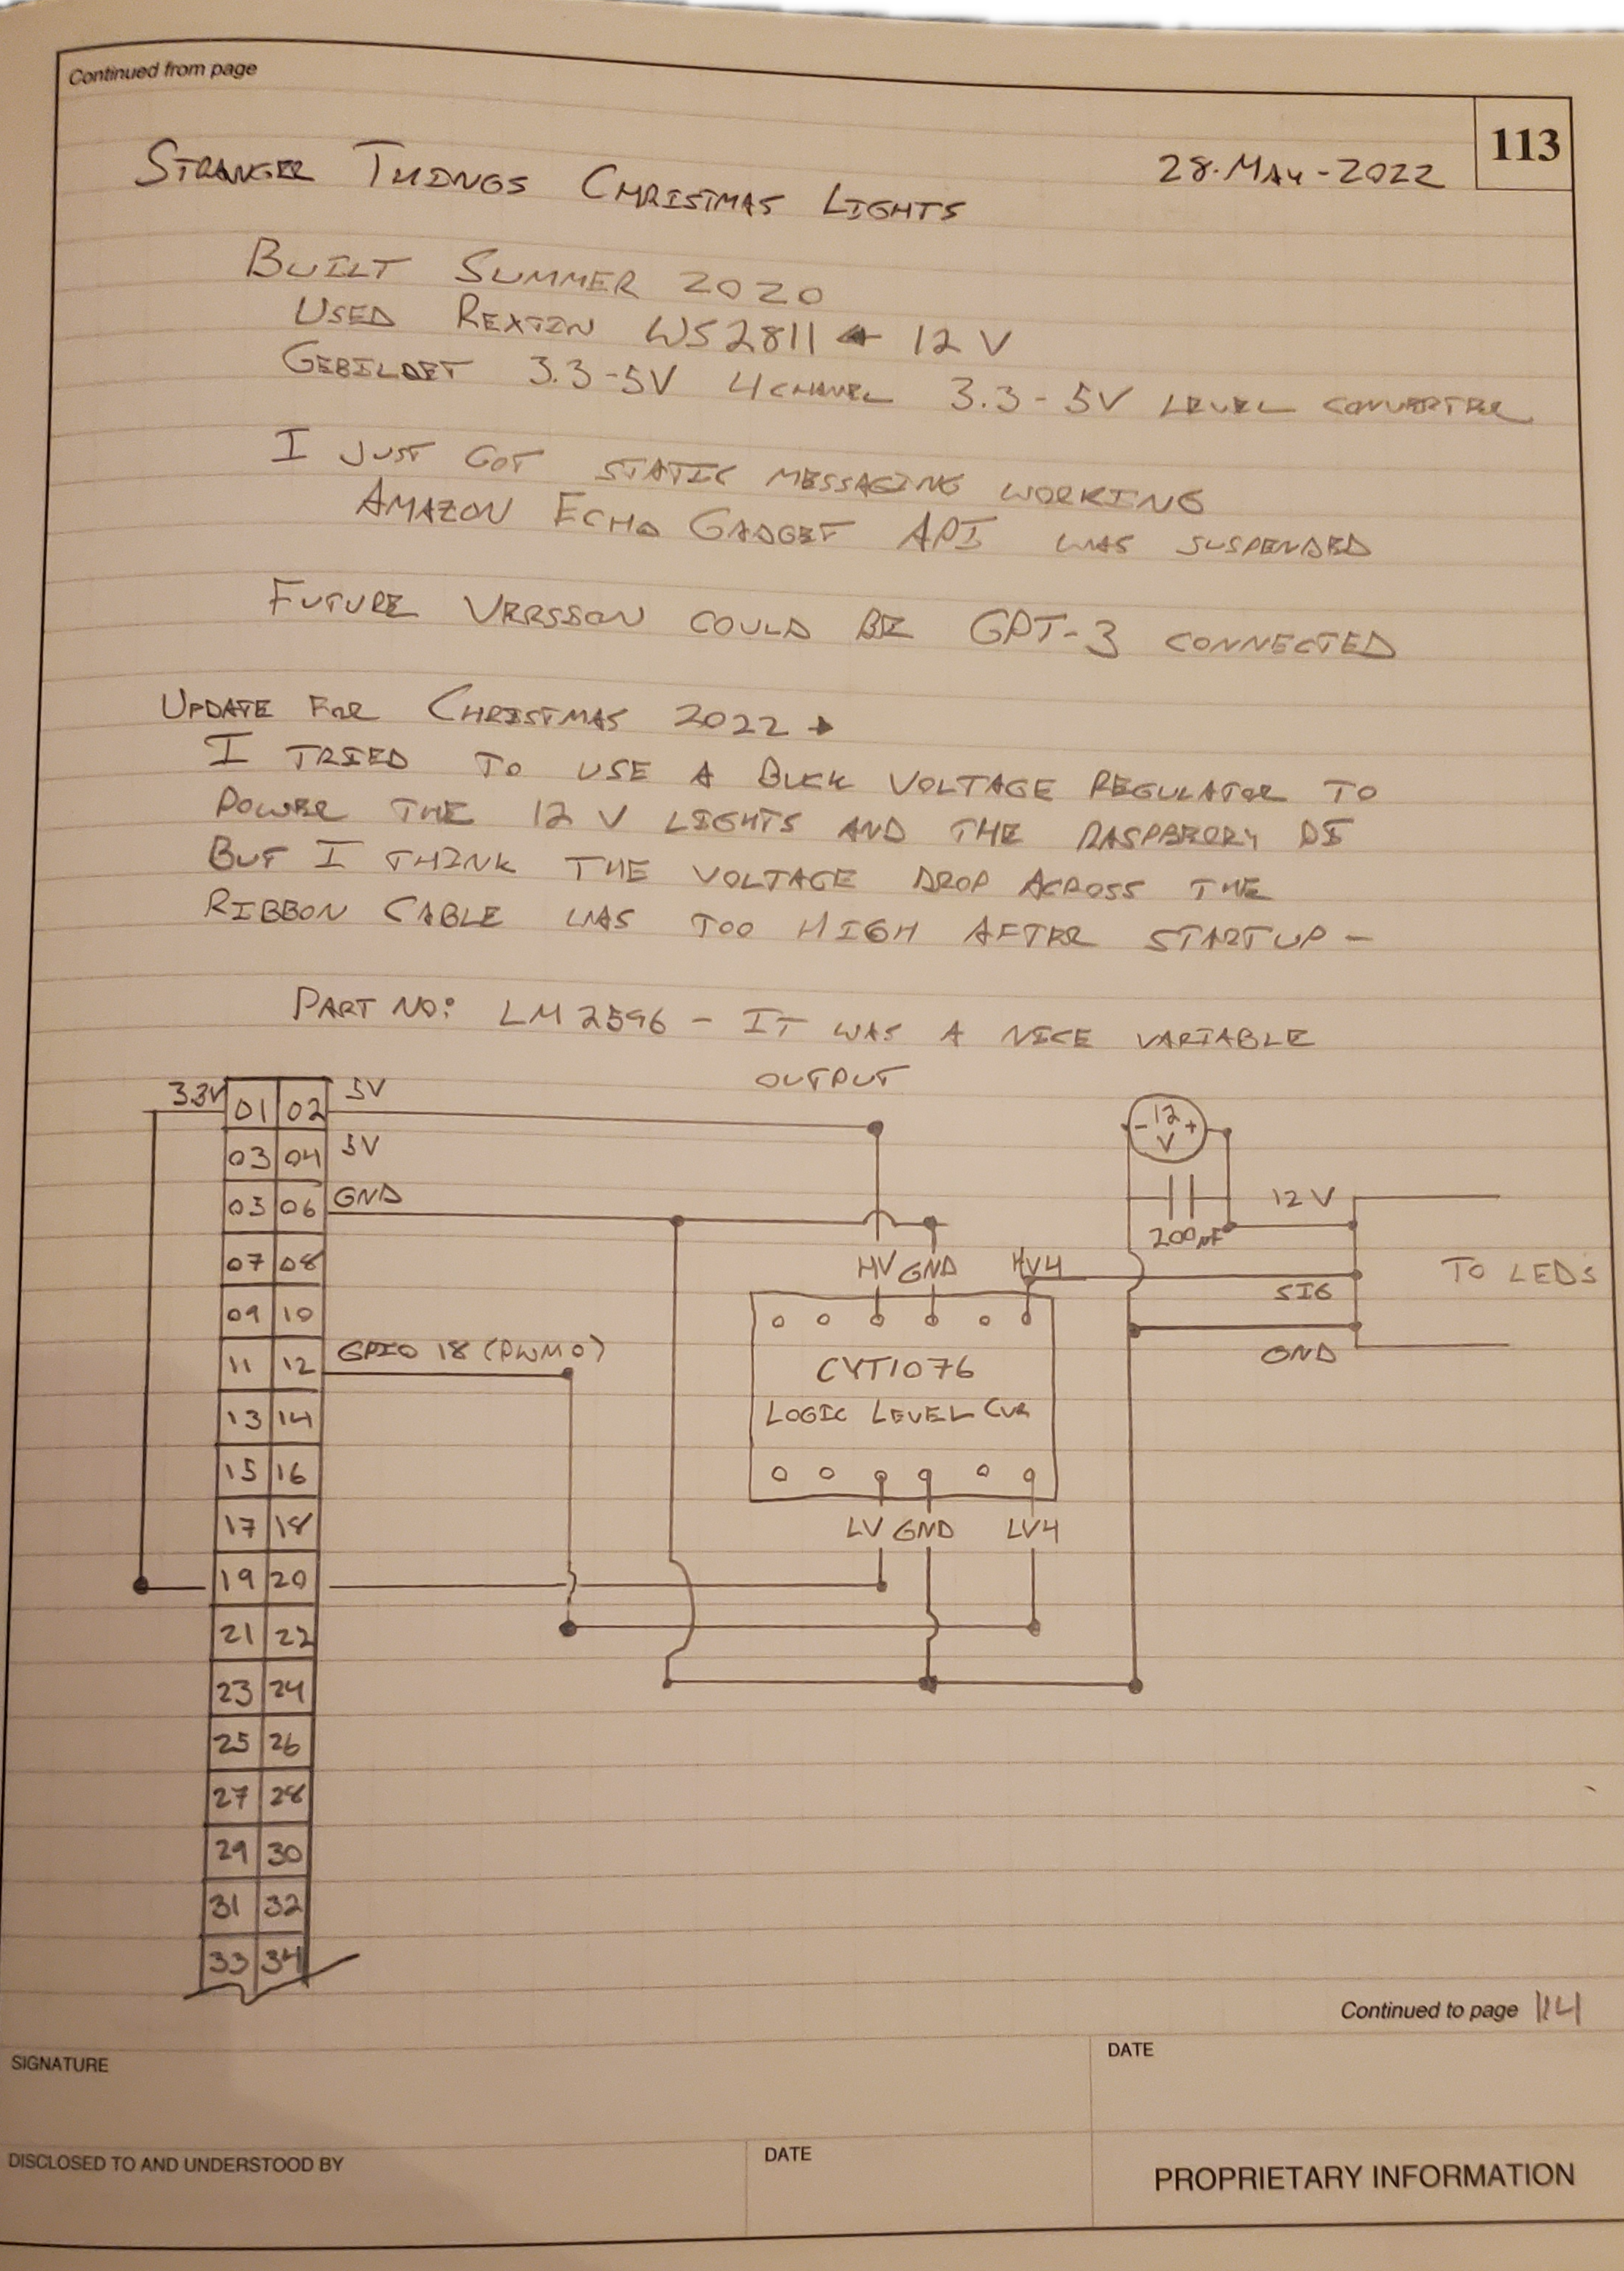 Continued from page
113
STRANGER THINGS CHRISTMAS LIGHTS
28-MAY-2022
BUILT SUMMER 2020
USED REXTIN WS2811 ← 12 V
GEBILDET 3.3-5V 4 CHANEL 3.3-5V LEVEL CONVERTER
I JUST GOT STATIC MESSAGING WORKING
AMAZON ECHO GADGET API WAS SUSPENDED
FUTURE VERSION COULD BE GPT-3 CONNECTED
UPDATE FOR CHRISTMAS 2022 →
I TRIED TO USE A BUCK VOLTAGE REGULATOR TO
POWER THE 12 V LIGHTS AND THE RASPBERRY PI
BUT I THINK THE VOLTAGE DROP ACROSS THE
RIBBON CABLE WAS TOO HIGH AFTER STARTUP -
PART NO: LM2596 - IT WAS A NICE VARIABLE
OUTPUT
3.3V 01 02 5V
03 04 5V
05 06 GND
07 08
09 10
11 12 GPIO 18 (PWM0)
13 14
15 16
17 18
19 20
21 22
23 24
25 26
27 28
29 30
31 32
33 34
HV GND HV4
CYT1076
LOGIC LEVEL CVR
LV GND LV4
- 12 +
V
200µF
12 V
SIG
GND
TO LEDS
Continued to page 114
SIGNATURE
DATE
DISCLOSED TO AND UNDERSTOOD BY
DATE
PROPRIETARY INFORMATION